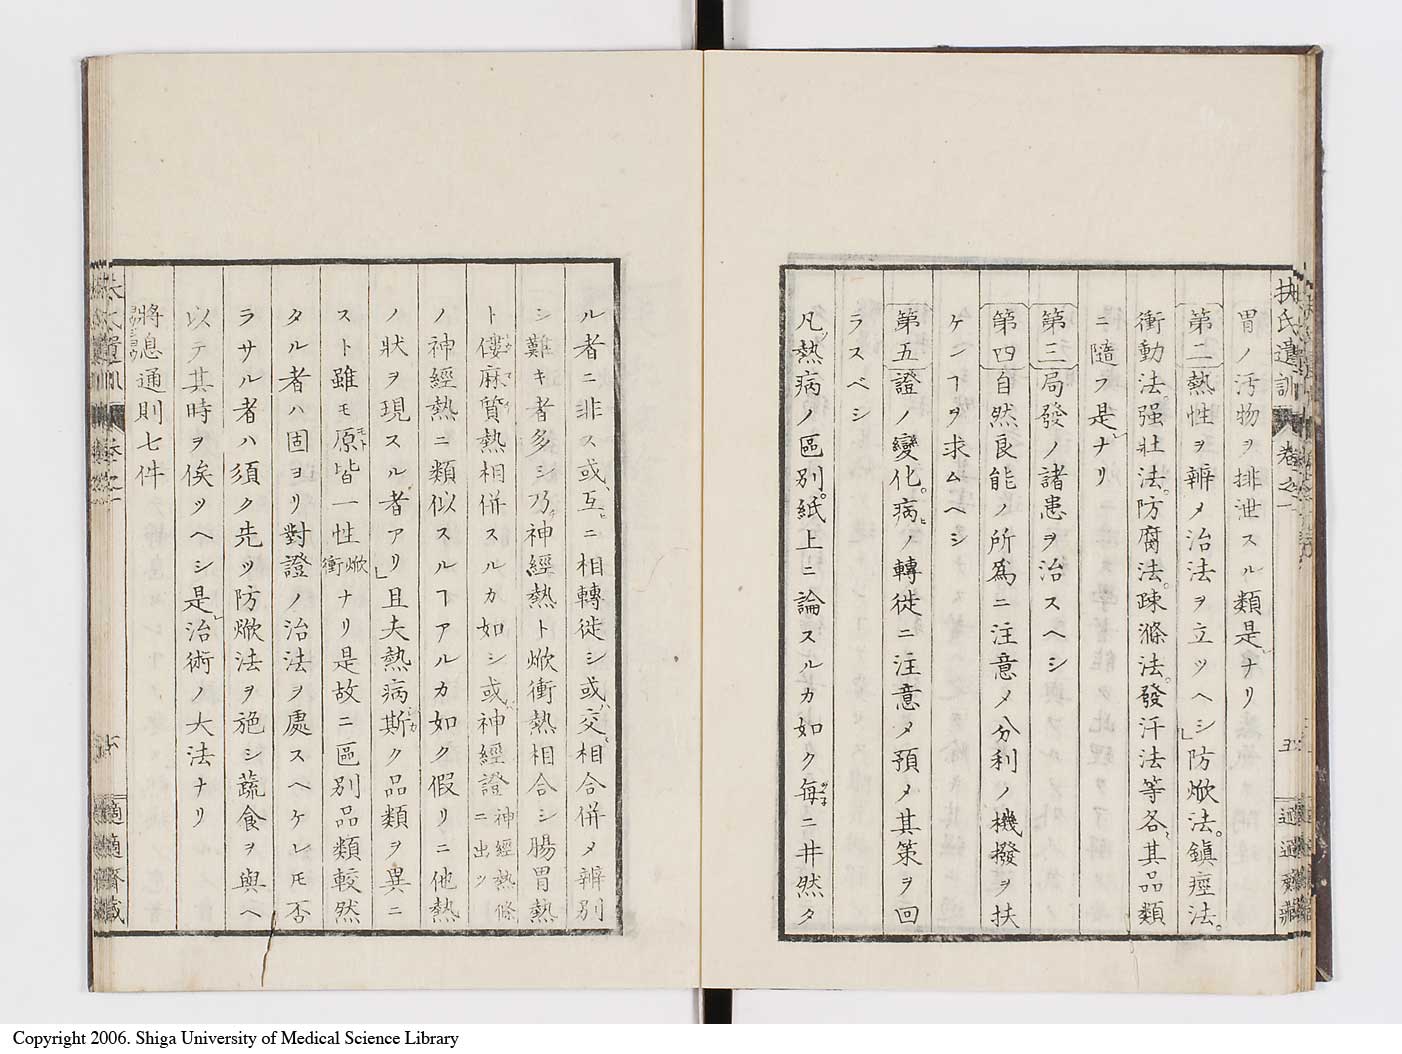 扶氏遺訓 卷之一 五 適適齋藏
胃ノ汚物ヲ排泄スル類是レナリ
第二熱性ヲ辨メ治法ヲ立ツヘシ防焮法。鎭痙法。
衝動法。强壯法。防腐法。疎滌法。發汗法等各〻其品類
ニ隨フ是レナリ
第三局發ノ諸患ヲ治スヘシ
第四自然良能ノ所爲ニ注意メ分利ノ機撥ヲ扶
ケンヿヲ求ムヘシ
第五證ノ變化。病ヒノ轉徙ニ注意メ預メ其策ヲ回
ラスベシ
凡ソ熱病ノ區別。紙上ニ論スルカ如ク每ツネニ井然タ
ル者ニ非ス或ハ互ヒニ相轉徙シ或ハ交〻相合併メ辨別
シ難キ者多シ乃チ神經熱ト焮衝熱相合シ腸胃熱
ト僂麻質熱相併スルカ如シ或ハ神經證神經熱條ニ出ツ
ノ神經熱ニ類似スルヿアルカ如ク假リニ他熱
ノ狀ヲ現スル者アリ且夫熱病斯シカク品類ヲ異ニ
スト雖モ原モト皆一性焮衝ナリ是故ニ區別品類較然
タル者ハ固ヨリ對證ノ治法ヲ處スヘケレモ否
ラサル者ハ須ク先ツ防焮法ヲ施シ蔬食ヲ與ヘ
以テ其時ヲ俟ツヘシ是レ治術ノ大法ナリ
將息通則七件
適適齋藏
Copyright 2006. Shiga University of Medical Science Library